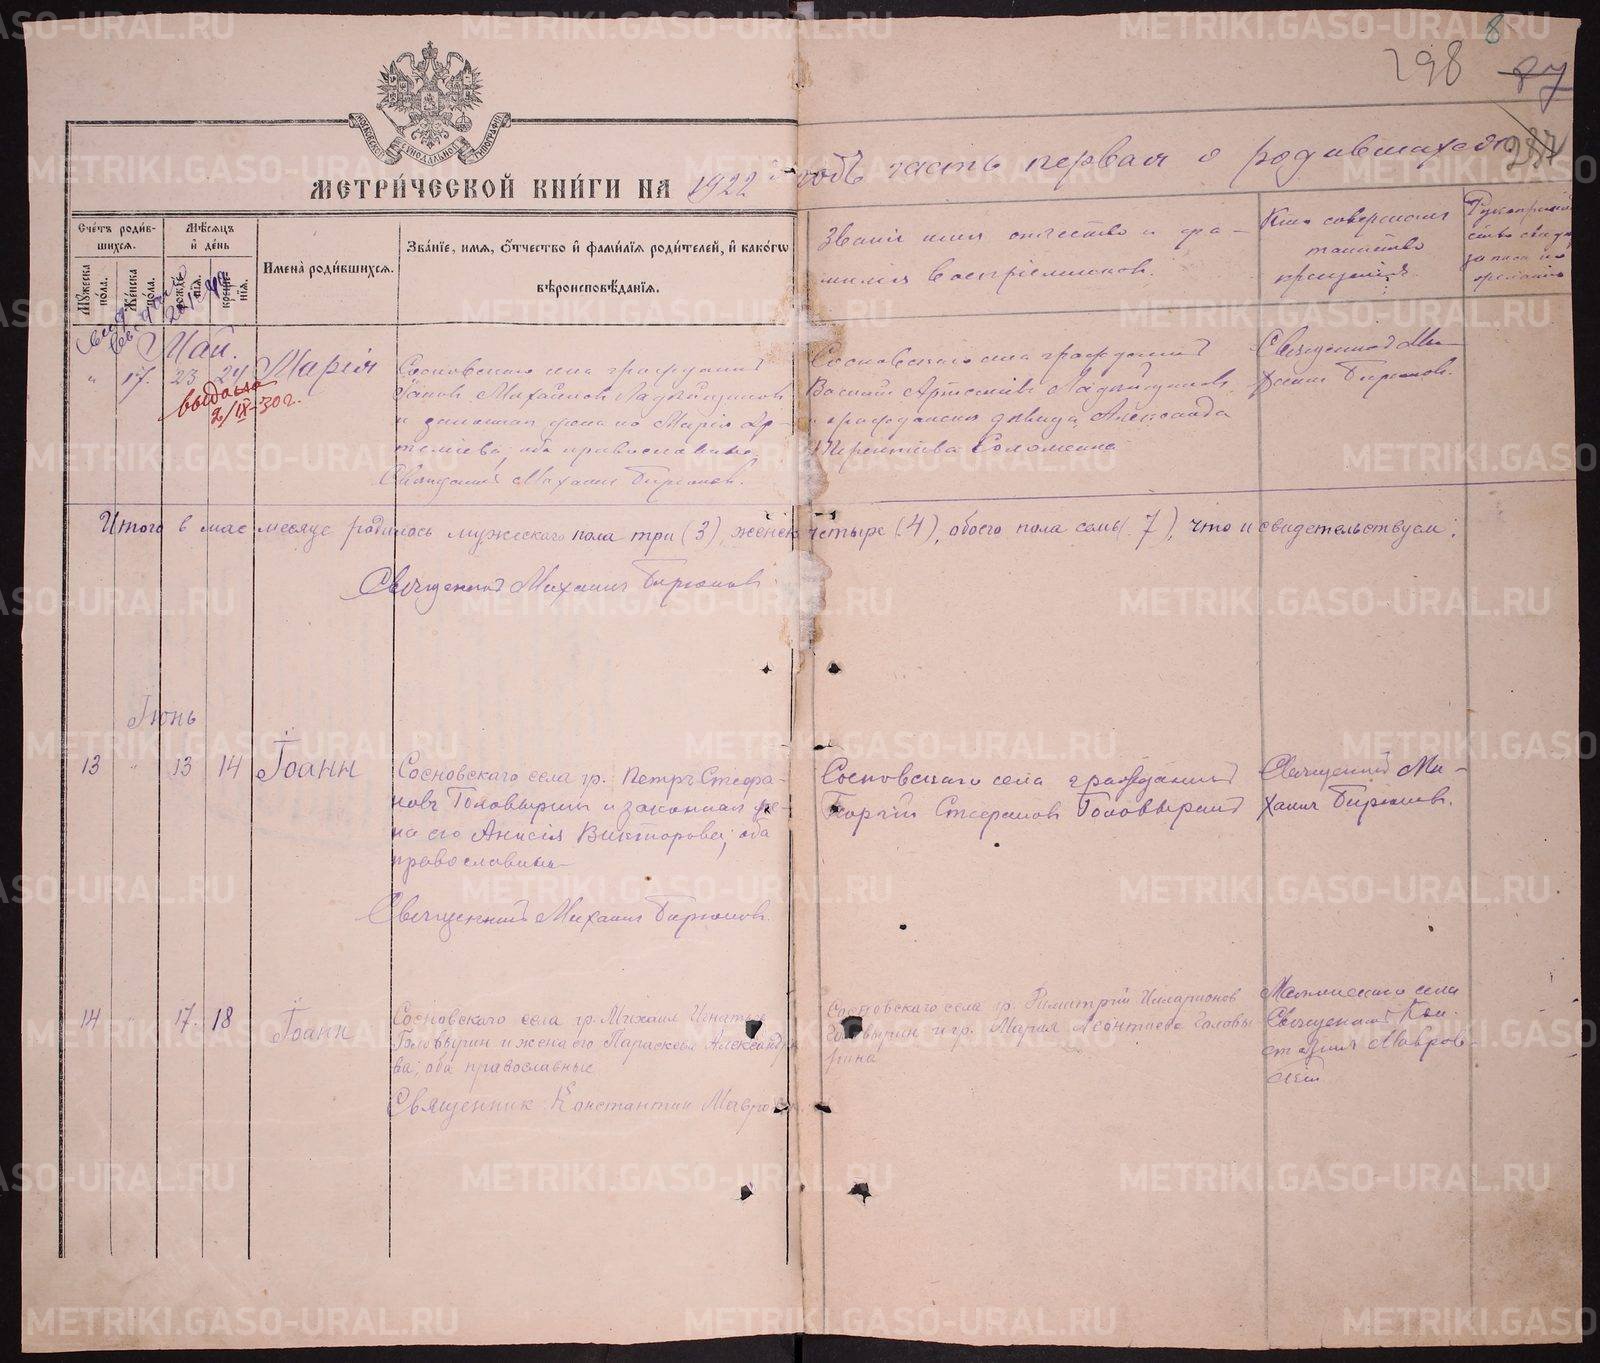 8
298 87
287
МОСКОВСКОЙ СѴНОДАЛЬНОЙ ТИПОГРАФІИ
МЕТРИ́ЧЕСКОЙ КНИ́ГИ НА 1922 годъ часть первая о родившихся
Сче́тъ роди́вшихся.
Мꙋ́жеска по́ла.
Же́нска по́ла.
Мѣ́сяцъ и҆ де́нь
рожде́нїя.
креще́нїя.
И҆мена̀ роди́вшихся.
Зва́нїе, и҆́мя, ѻ҆́тчество и҆ фами́лїѧ роди́телей, и҆ како́гѡ вѣроисповѣ́данїѧ.
Званіе имя отчество и фамилія воспріемниковъ.
Кто совершилъ таинство крещенія.
Май.
" 17. 23 24 Марія
выдана
2/IX-30 г.
Сосновскаго села гражданинъ
Михайловъ
и законная жена его Марія Артеміева, оба православные.
Священникъ Михаилъ Бирюковъ.
Сосновскаго села гражданинъ
Василій Артеміевъ
гражданская дѣвица Александра
Священникъ Михаилъ Бирюковъ.
Итого в мае месяце родилось мужескаго пола три (3), женск четыре (4), обоего пола семь (7), что и свидетельствуем:
Священникъ Михаилъ Бирюковъ
Іюнь
13 " 13 14 Іоаннъ
Сосновскаго села гр. Петръ Стефановъ Головыринъ и законная жена его Анисія Викторова; оба православные
Священникъ Михаилъ Бирюковъ.
Сосновскаго села гражданинъ
Георгій Стефановъ Головыринъ
Священникъ Михаилъ Бирюковъ.
14 " 17. 18 Іоанн
Сосновскаго села гр. Михаил Игнатьев
Головырин и жена его Параскева Александрова, оба православные
Священник Константин Мавро
Сосновскаго села гр. Димитрій Илларионов
Головырин и гр. Мария Леонтиева Головырина
села
Священникъ Константинъ Мавровскій
METRIKI.GASO-URAL.RU